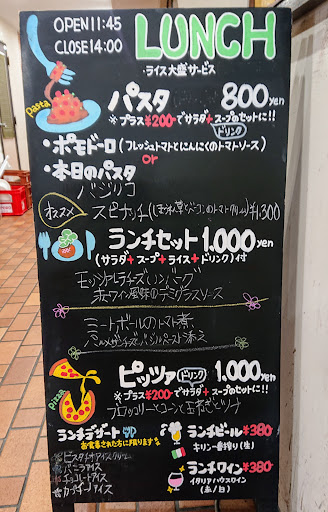 OPEN 11:45
CLOSE 14:00
LUNCH
・ライス大盛サービス
Pasta
パスタ 800yen
※プラス¥200で サラダ+スープのセットに!!
ドリンク
・ポモドーロ(フレッシュトマトとにんにくのトマトソース)
or
・本日のパスタ
バジリコ
オススメ スピナッチ(ほうれん草とベーコンのトマトクリーム)¥1,300
ランチセット 1,000yen
(サラダ+スープ+ライス+ドリンク)付
モッツァレラチーズハンバーグ
赤ワイン風味のデミグラスソース
ミートボールのトマト煮
パルメザンチーズ バジルペースト添え
Pizza
ピッツァ ドリンク 1,000yen
※プラス¥200でサラダ+スープのセットに!!
ブロッコリーとコーンと玉ねぎとツナ
ランチデザート UP
お食事された方に限ります。
ピスタチオアイスクリーム
バニラアイス
チョコレートアイス
カプチーノアイス
ランチビール ¥380
キリン一番搾り(生)
ランチワイン ¥380
イタリアハウスワイン
(赤/白)